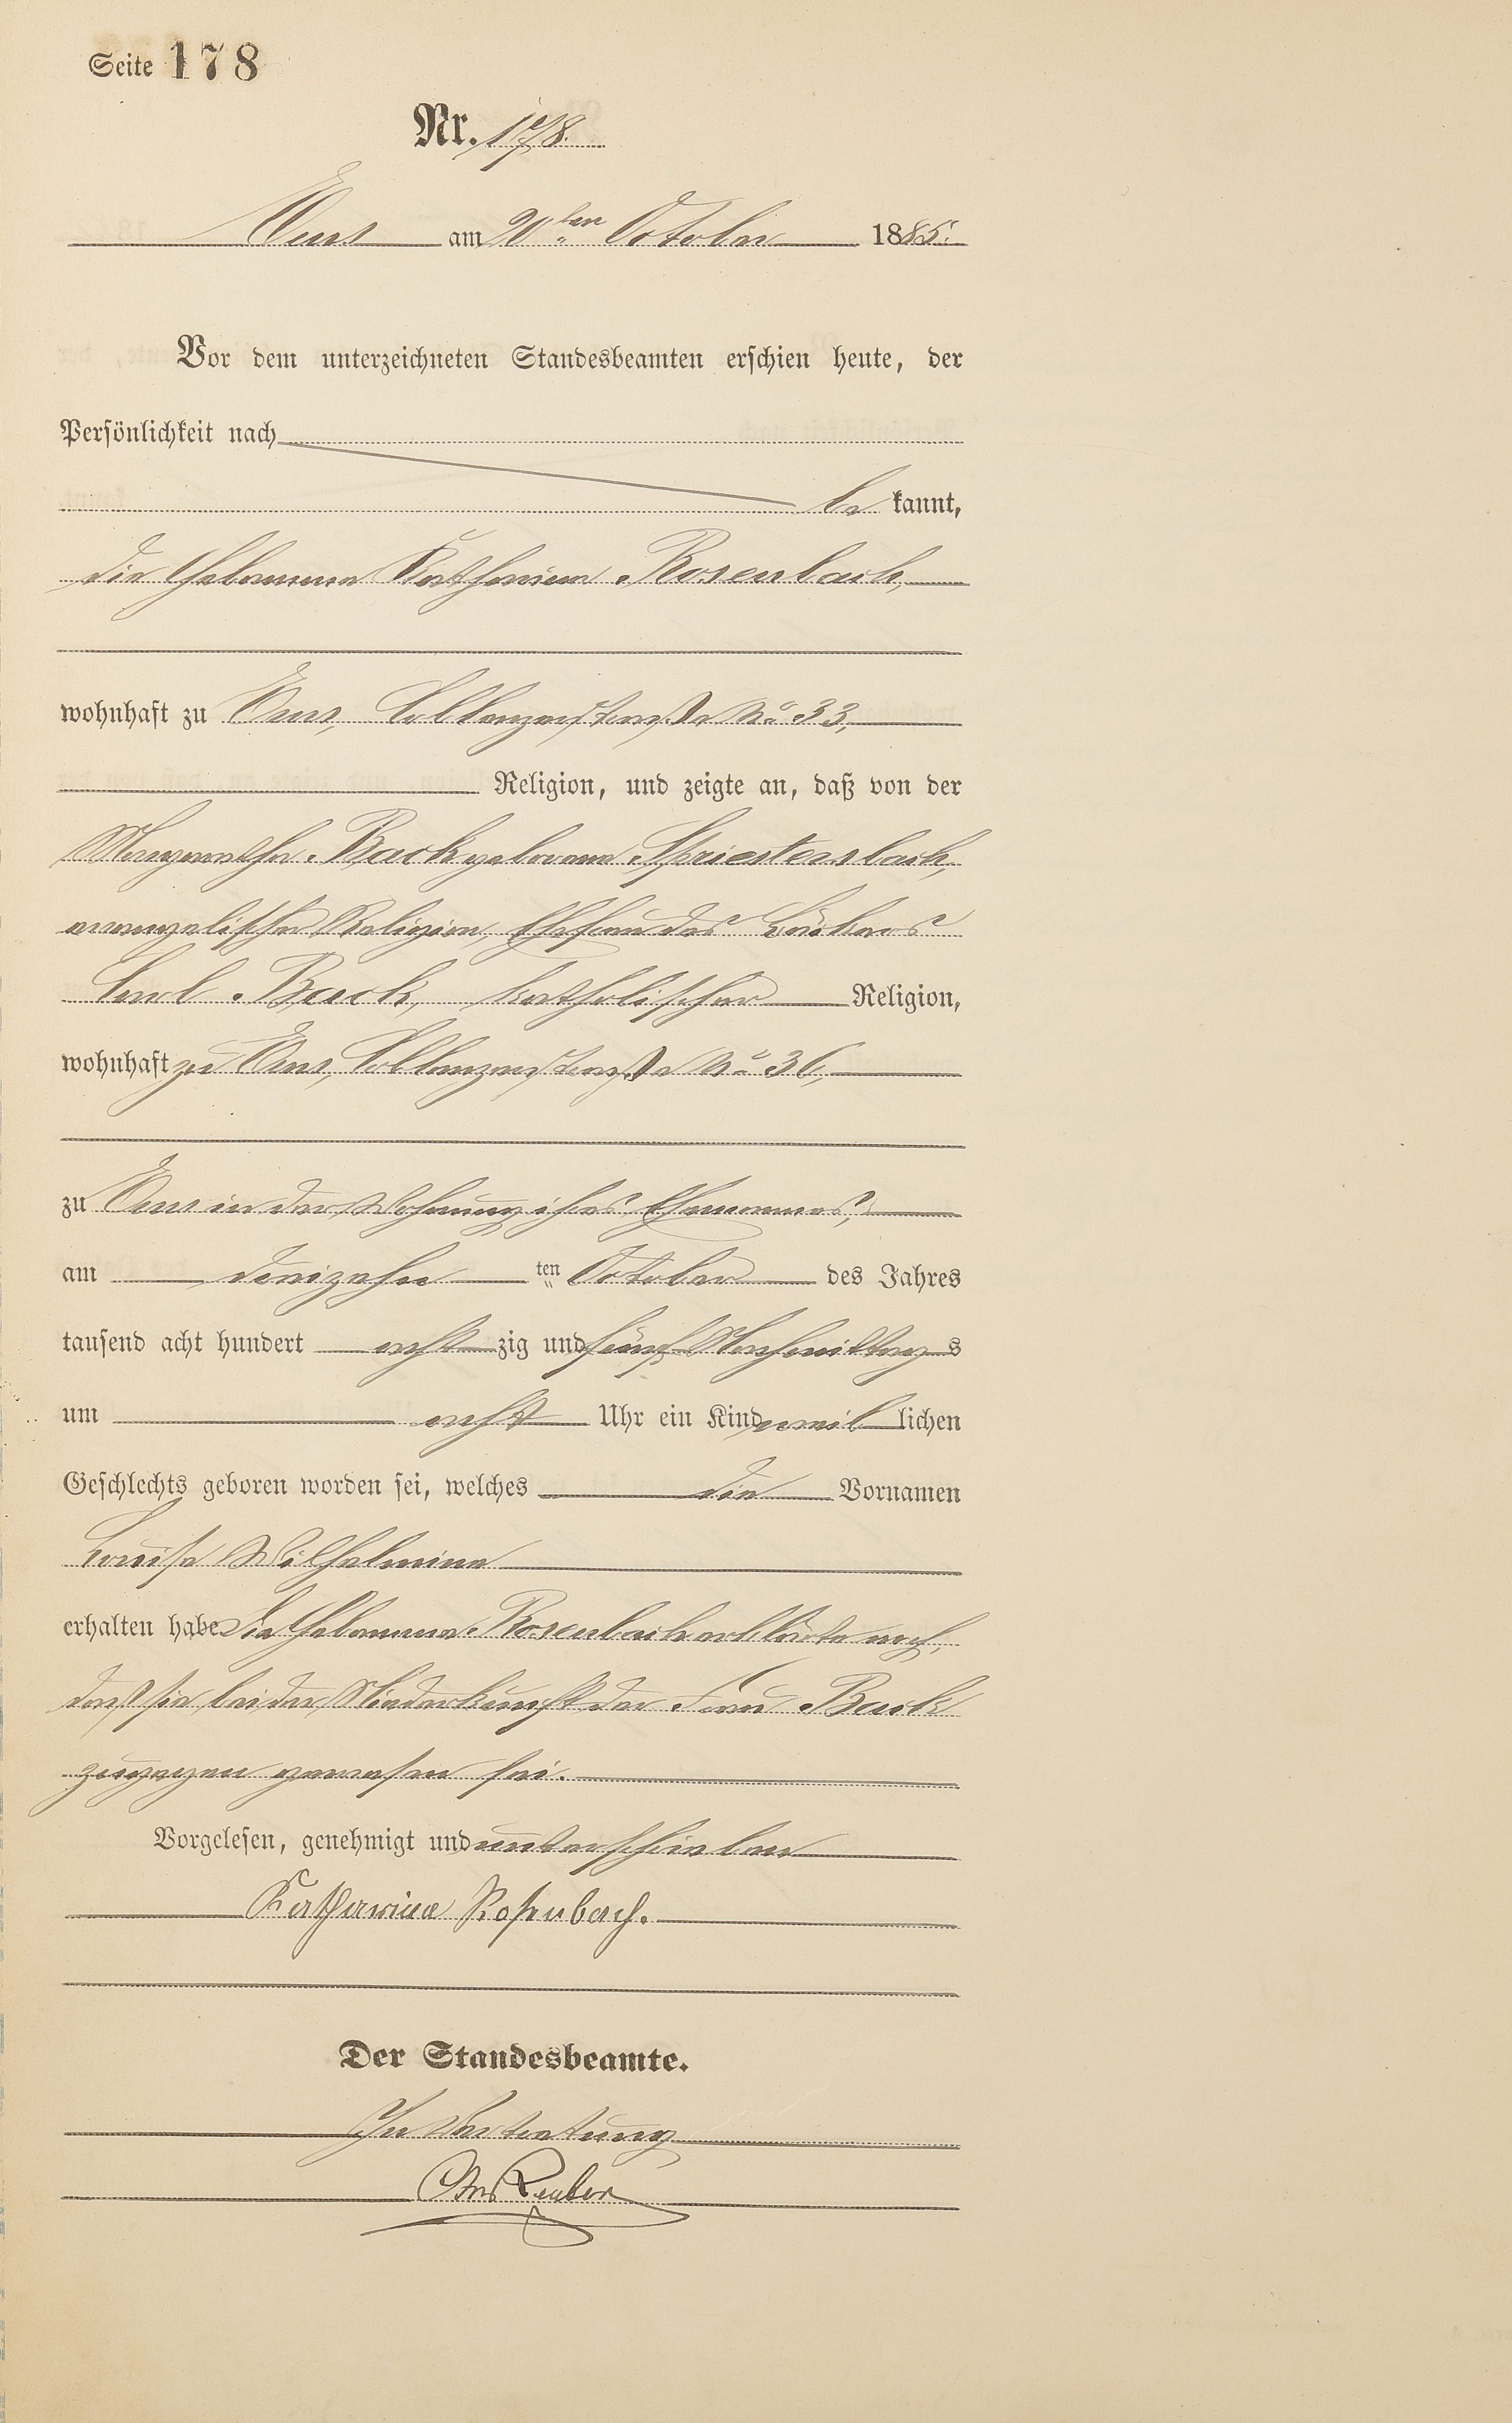 Seite 178
Nr. 178.
Ems am 20ten October 1885.
Vor dem unterzeichneten Standesbeamten erschien heute, der
Persönlichkeit nach
be kannt,
die Hebamme Katharina Rosenbach,
wohnhaft zu Ems, Coblenzerstraße No. 33,
Religion, und zeigte an, daß von der
Margarethe Back geborene Spriestersbach,
evangelischer Religion, Ehefrau des Bäckers
Carl Back, katholischer Religion,
wohnhaft zu Ems, Coblenzerstraße No. 36,
zu Ems in der Wohnung ihres Ehemannes,
am dreizehn ten October des Jahres
tausend acht hundert acht zig und fünf Nachmittags
um acht Uhr ein Kind weib lichen
Geschlechts geboren worden sei, welches die Vornamen
Louise Wilhelmine
erhalten habe Die Hebamme Rosenbach erklärte noch,
daß sie bei der Niederkunft der Frau Back
zugegen gewesen sei.
Vorgelesen, genehmigt und unterschrieben
Katharina Rosenbach.
Der Standesbeamte.
In Vertretung